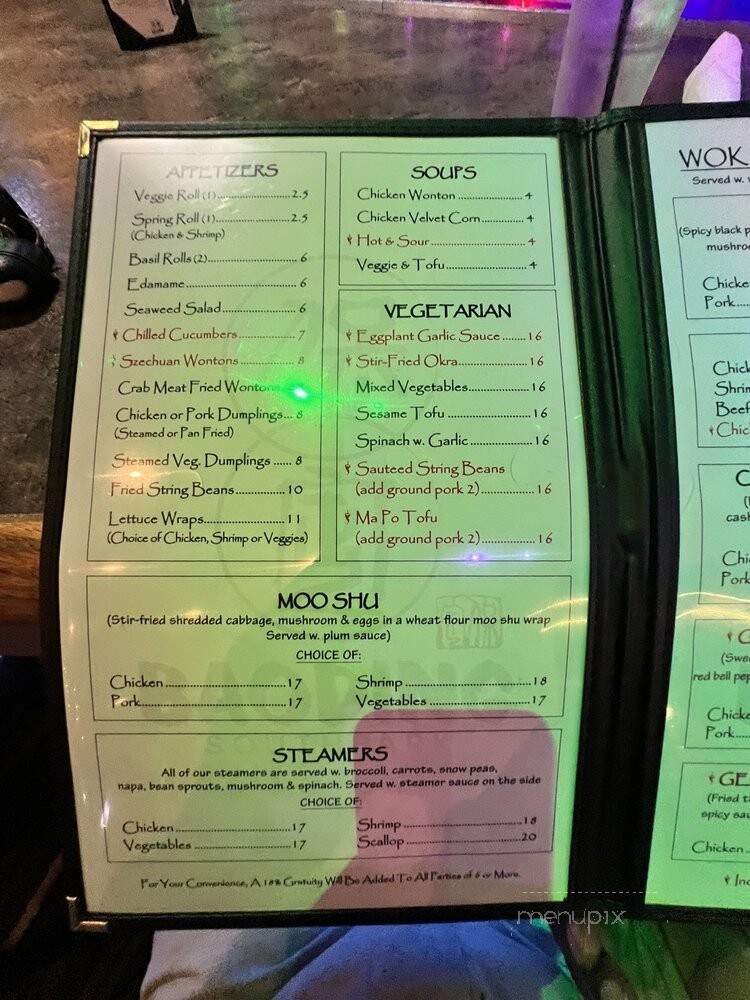 APPETIZERS
Veggie Roll (1)....................2.5
Spring Roll (1)....................2.5
(Chicken & Shrimp)
Basil Rolls (2)....................6
Edamame....................6
Seaweed Salad....................6
Chilled Cucumbers....................7
Szechuan Wontons....................8
Crab Meat Fried Wontons
Chicken or Pork Dumplings... 8
(Steamed or Pan Fried)
Steamed Veg. Dumplings ...... 8
Fried String Beans................10
Lettuce Wraps....................11
(Choice of Chicken, Shrimp or Veggies)
SOUPS
Chicken Wonton....................4
Chicken Velvet Corn...........4
Hot & Sour....................4
Veggie & Tofu....................4
VEGETARIAN
Eggplant Garlic Sauce.......16
Stir-Fried Okra....................16
Mixed Vegetables................16
Sesame Tofu....................16
Spinach w. Garlic................16
Sauteed String Beans
(add ground pork 2)..............16
Ma Po Tofu
(add ground pork 2)..............16
MOO SHU
(Stir-fried shredded cabbage, mushroom & eggs in a wheat flour moo shu wrap
Served w. plum sauce)
CHOICE OF:
Chicken....................17
Pork....................17
Shrimp....................18
Vegetables....................17
STEAMERS
All of our steamers are served w. broccoli, carrots, snow peas,
napa, bean sprouts, mushroom & spinach. Served w. steamer sauce on the side
CHOICE OF:
Chicken....................17
Vegetables....................17
Shrimp....................18
Scallop....................20
For Your Convenience, A 18% Gratuity Will Be Added To All Parties of 6 or More.
WOK
Served w.
(Spicy black
Pork....
Pork
(Swe
red bell pep
Pork....
GE
(Fried
spicy sau
Chicken
menupix